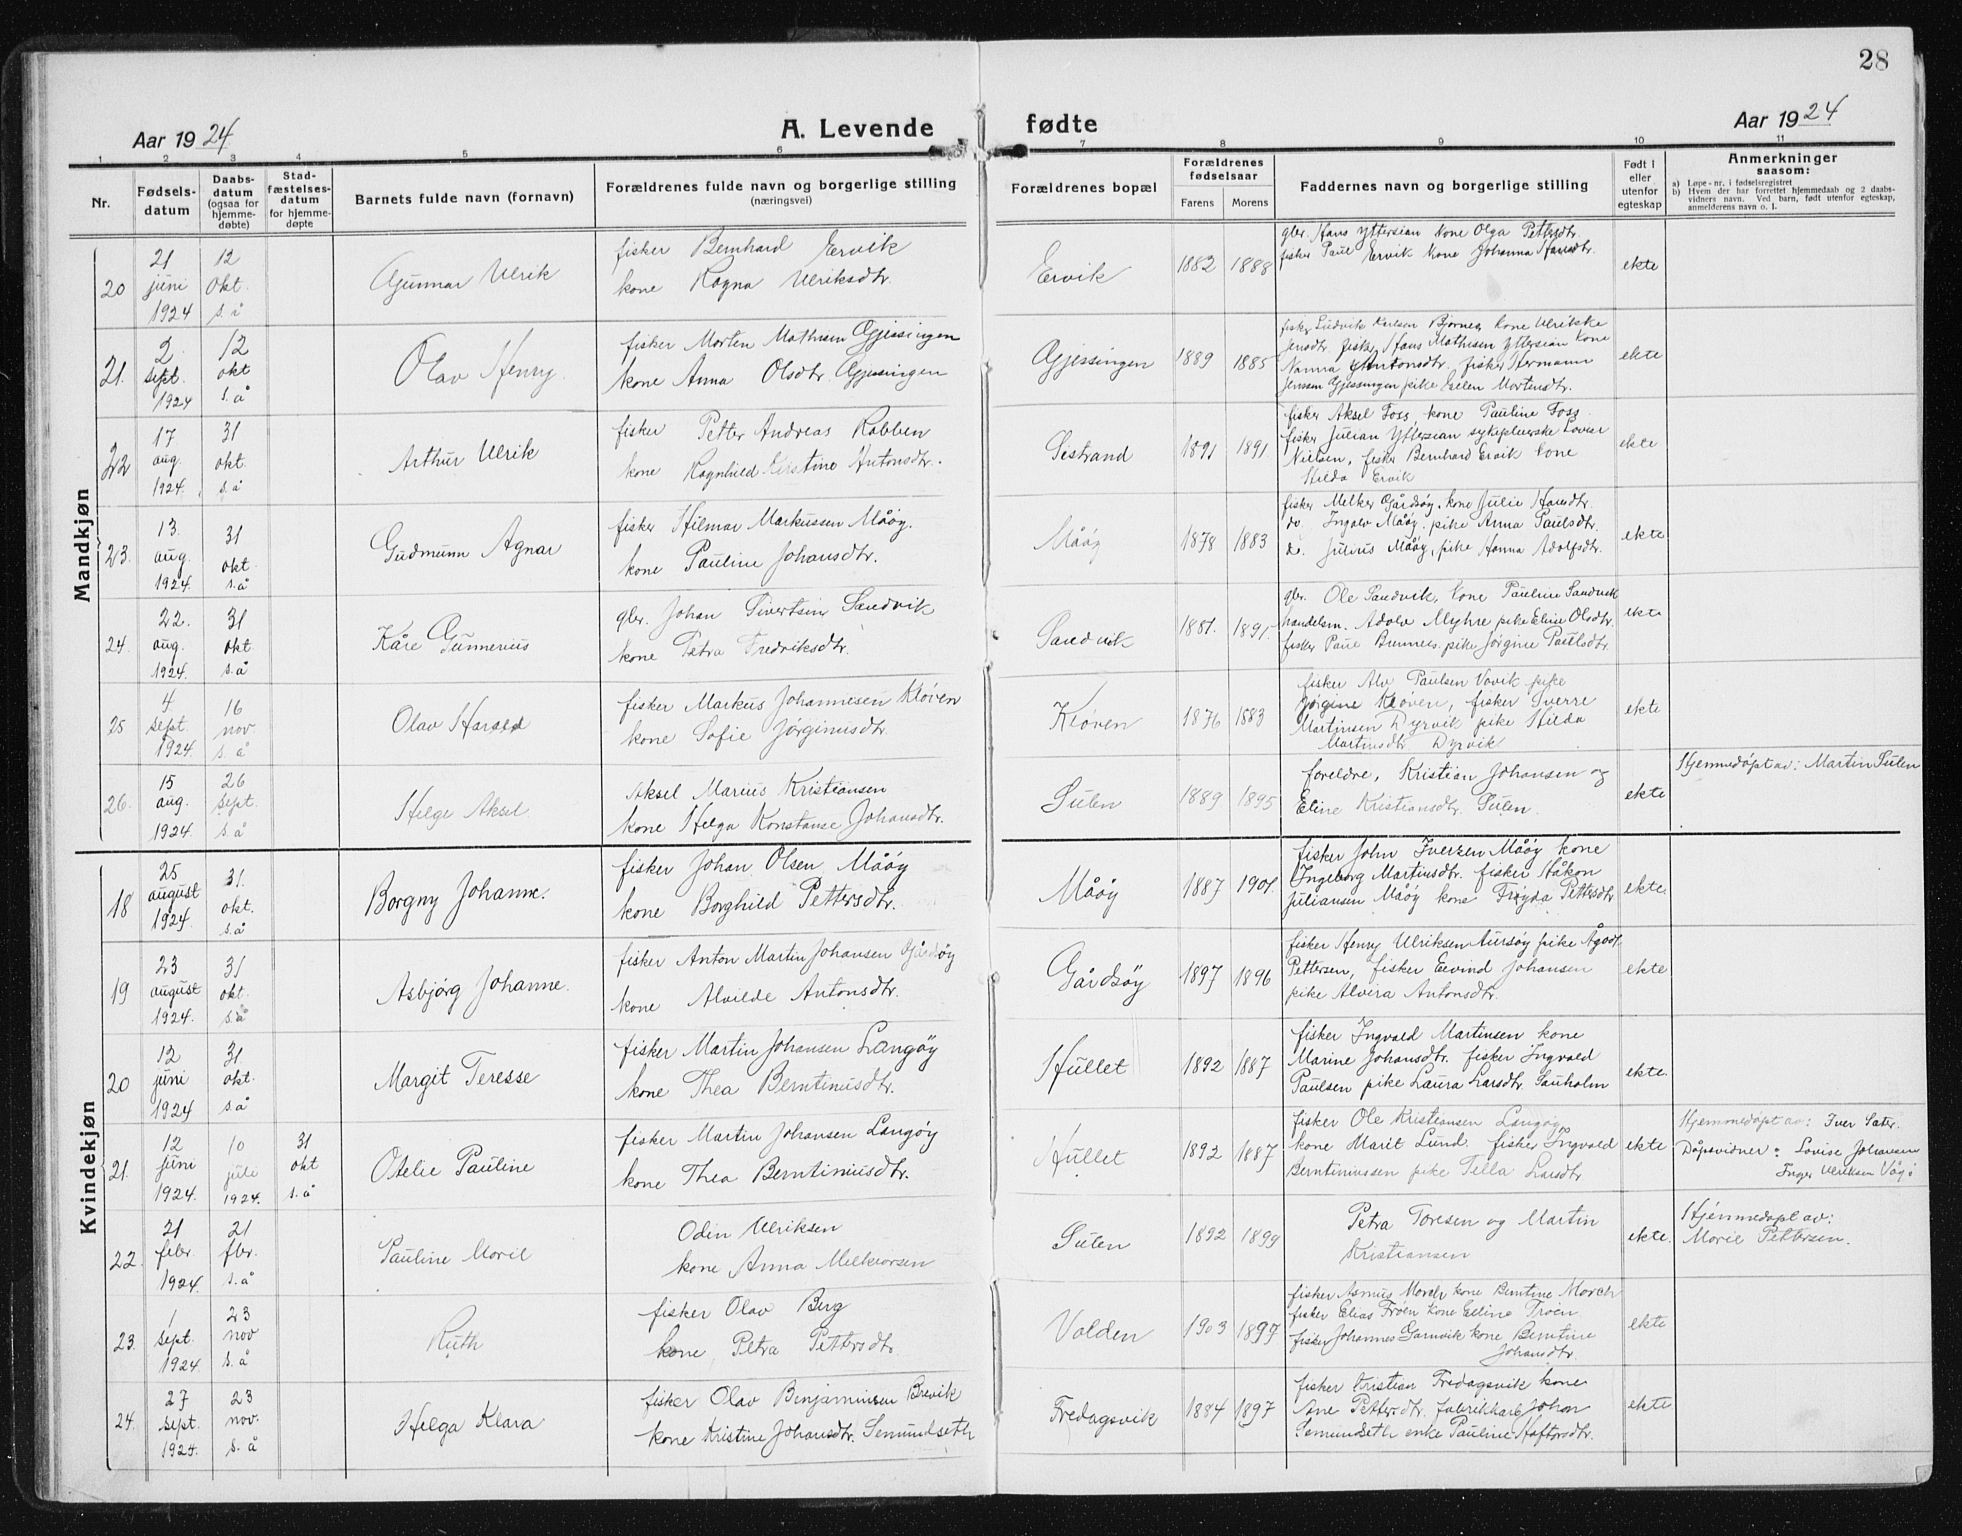 28
Aar 1924
A. Levende fødte
Aar 1924
1 2 3 4 5 6 7 8 9 10 11
Nr.
Fødsels-
datum
Daabs-
datum
(ogsaa for
hjemme-
døbte)
Stad-
fæstelses-
datum
for hjemme-
døpte
Barnets fulde navn (fornavn)
Forældrenes fulde navn og borgerlige stilling
(næringsvei)
Forældrenes bopæl
Forældrenes
fødselsaar
Farens Morens
Faddernes navn og borgerlige stilling
Født i
eller
utenfor
egteskap
Anmerkninger
saasom:
a) Løpe-nr. i fødselsregistret
b) Hvem der har forrettet hjemmedaab og 2 daabs-
vidners navn. Ved barn, født utenfor egteskap,
anmelderens navn o. l.
Mandkjøn
20
21
juni
1924
12
Okt.
s. å
Gunnar Ulrik
fisker Bernhard Ervik
kone Ragna Ulriksdtr.
Ervik
1882 1888
gbr. Hans Yttersian kone Olga Pettersdtr.
fisker Paul Ervik kone Johanna Hansdtr.
ekte
21.
2
sept.
1924
12
okt
s. å
Olav Henry.
fisker Morten Mathisen Gjessingen
kone Anna Olsdtr. Gjessingen
Gjessingen
1889 1885
fisker Ludvik Karlsen Bjørnes, kone Ulrikke
Jensdtr fisker Hans Mathisen Yttersian kone
Nanna Antonsdtr. fisker Hermann
Jensen Gjessingen pike Mortensdtr.
ekte
22
17
aug.
1924.
31
okt.
s. å
Arthur Ulrik
fisker Petter Andreas Rabben
kone Ragnhild Kirstine Antonsdtr.
Sistrand
1891 1891
fisker Aksel Foss, kone Pauline Foss.
fisker Julian Yttersian sykepleierske
Nielsen, fisker Bernhard Ervik kone
Hilda Ervik
ekte
23.
13.
aug.
1924
31
okt.
s. å
Gudmunn Agnar
fisker Hilmar Markussen Måøy.
kone Pauline Johansdtr.
Måøy
1878 1883
fisker Melker Gårdsøy, kone Julie Hansdtr.
do. Ingolv Måøy, pike Anna Paulsdtr.
do. Julius Måøy, pike Hanna Adolfsdtr.
ekte
24.
22.
aug.
1924.
31
okt.
s. å
Kåre Gunnerius
gbr. Johan Sivertsen Sandvik
kone Petra Fredriksdtr.
Sandvik
1881. 1891.
gbr. Ole Sandvik, kone Pauline Sandvik
handelsm. Adolv Myhre pike Eline Olsdtr.
fisker Paul pike Jørgine Paulsdtr.
ekte
25
4
sept.
1924.
16
nov.
s. å
Olav Harald
fisker Markus Johannesen Kløven
kone Sofie Jørginusdtr.
Kløven
1876 1883
fisker Alv Paulsen Vavik pike
Jørgine Kløven, fisker Sverre
Martinsen Dyrvik pike Hilda
Martinsdtr. Dyrvik
ekte
26.
15
aug.
1924
26
sept.
s. å
Helge Aksel
Aksel Marius Kristiansen
kone Helga Konstanse Johansdtr.
Sulen
1889 1895
foreldre, Kristian Johansen og
Eline Kristiansdtr. Sulen.
ekte
Hjemmedøpt av: Martin Sulen
Kvindekjøn
18
25
august
1924
31.
okt.
s. å
Borgny Johanne.
fisker Johan Olsen Måøy
kone Borghild Pettersdtr.
Måøy
1887 1901.
fisker John Iversen Måøy kone
Ingeborg Martinsdtr. fisker Håkon
Juliansen Måøy kone Frøyda Pettersdtr
ekte
19
23
august
1924.
31
okt.
s. å
Asbjørg Johanne.
fisker Anton Martin Johansen Gårdsøy
kone Alvilde Antonsdtr.
Gårdsøy
1897 1896
fisker Henry Ulriksen Aursøy pike Ågot
Pettersen, fisker Eivind Johansen
pike Alvira Antonsdtr.
ekte
20
12
juni
1924
31
okt.
s. å
Margit Teresse
fisker Martin Johansen Langøy
kone Thea Berntinusdtr.
Hullet
1892 1887
fisker Ingvald Martinsen kone
Marine Johansdtr. fisker Ingvald
Paulsen pike Laura Larsdtr. Sauholm
ekte.
21.
12
juni
1924.
10
juli
1924.
31
okt
s. å
Otelie Pauline
fisker Martin Johansen Langøy
kone Thea Berntinusdtr.
Hullet
1892 1887
fisker Ole Kristiansen Langøy
kone Marit Lund. fisker Ingvald
Berntinussen pike Tella Larsdtr
ekte
Hjemmedøpt av: Iver Sæter.
Dåpsvidner: Lovise Johansen
Inger Ulriksen Vågø
22.
21
febr.
1924.
21
fbr.
s. å
Pauline Marie
Odin Ulriksen
kone Anna Melkiorsen
Sulen
1892 1899
Petra Toresen og Martin
Kristiansen
ekte.
Hjemmedøpt av:
Marie Pettersen.
23.
1
sept.
1924.
23
nov
s. å
Ruth
fisker Olav Berg
kone, Petra Pettersdtr.
Valden
1903 1897
fisker Asmus Morch kone Berntine Morch
fisker Elias Frøen kone Eline Frøen
fisker Johannes Garnvik kone Berntine
Johansdtr.
ekte
24.
27
sept.
1924.
23
nov.
s. å
Helga Klara
fisker Olav Benjaminsen Brevik
kone Kristine Johansdtr. Semundseth
Fredagsvik
1884 1897
fisker Kristian Fredagsvik kone
Ane Pettersdtr. fabrikkarb. Johan
Semundseth enke Pauline Haftorsdtr.
ekte